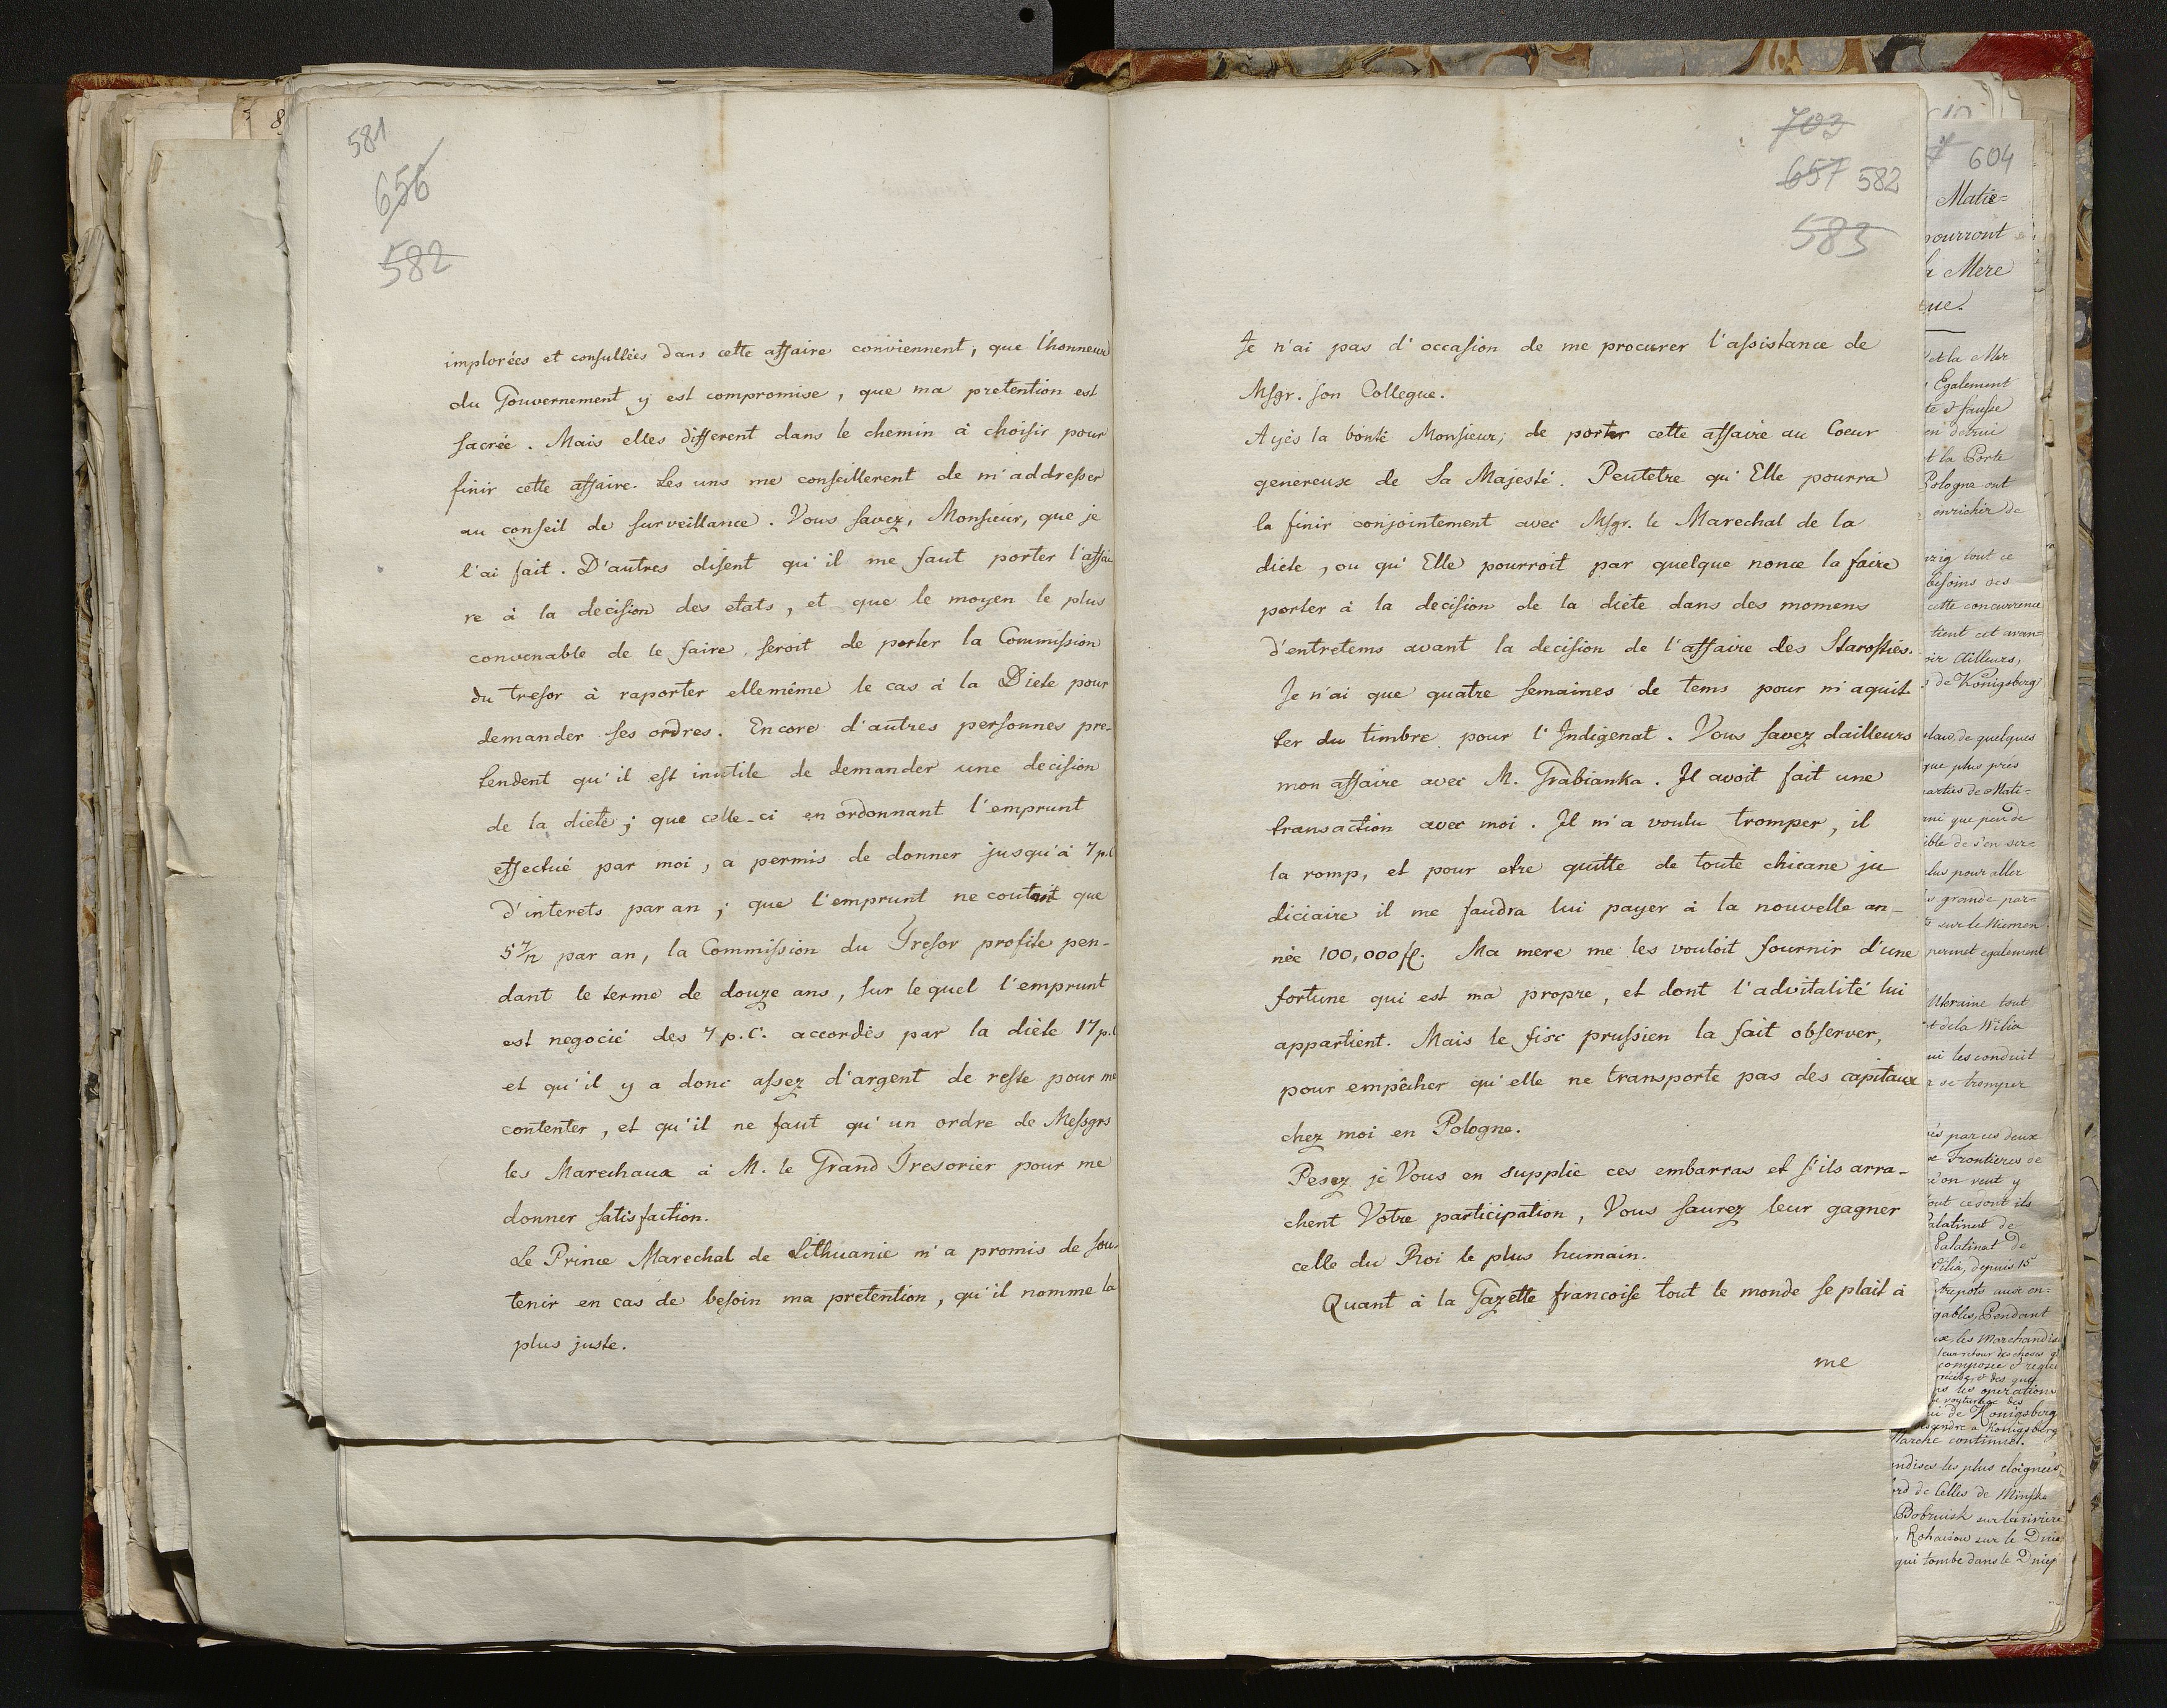 581
656
582
implorées et consultées dans cette affaire conviennent, que l'honneur
du Gouvernement y est compromise, que ma pretention est
sacrée. Mais elles different dans le chemin à choisir pour
finir cette affaire. Les uns me conseillerent de m'addresser
au conseil de surveillance. Vous savez, Monsieur, que je
l'ai fait. D'autres disent qu'il me faut porter l'affai
re à la decision des etats, et que le moyen le plus
convenable de le faire, seroit de porter la Commission
du tresor à raporter ellemême le cas à la Diete pour
demander ses ordres. Encore d'autres personnes pre-
tendent qu'il est inutile de demander une decision
de la diete; que celle-ci en ordonnant l'emprunt
effectué par moi, a permis de donner jusqu'à 7 p.C
d'interets par an; que l'emprunt ne coutant que
par an, la Commission du Tresor profite pen-
dant le terme de douze ans, sur lequel l'emprunt
est negocié des 7 p.C. accordés par la diète 17 p.C
et qu'il y a donc assez d'argent de reste pour me
contenter, et qu'il ne faut qu'un ordre de Messgrs
les Marechaux à M. le Grand Tresorier pour me
donner satisfaction.
Le Prince Marechal de Lithuanie m'a promis de sou-
tenir en cas de besoin ma pretention, qu'il nomme la
plus juste.
703
657 582
583
Je n'ai pas d'occasion de me procurer l'assistance de
Msgr. son Collegue.
Ayés la bonté Monsieur, de porter cette affaire au Coeur
genereux de Sa Majesté. Peutetre qu'Elle pourra
la finir conjointement avec Msgr. le Marechal de la
diete, ou qu'Elle pourroit par quelque nonce la faire
porter à la decision de la diete dans des momens
d'entretems avant la decision de l'affaire des Starosties.
Je n'ai que quatre semaines de tems pour m'aquit
ter du timbre pour l'Indigenat. Vous savez dailleurs
mon affaire avec M. Grabianka. Il avoit fait une
transaction avec moi. Il m'a voulu tromper, il
la romp, et pour etre quitte de toute chicane ju
diciaire il me faudra lui payer à la nouvelle an-
née 100,000 fl. Ma mere me les vouloit fournir d'une
fortune qui est ma propre, et dont l'advitalité lui
appartient. Mais le fisc prussien la fait observer,
pour empêcher qu'elle ne transporte pas des capitaux
chez moi en Pologne.
Pesez je Vous en supplie ces embarras et s'ils arra-
chent Votre participation, Vous saurez leur gagner
celle du Roi le plus humain.
Quant à la Gazette francoise tout le monde se plait à
me
604
Matie=
pourront
la Mere
que.
et la Mer
Egalement
te & fausse
t la Porte
Pologne ont
enrichir de
zig tout ce
besoins des
cette concurrence
tient cet avan=
oir Ailleurs,
de Königsberg
de quelques
que plus près
parties de Mati=
que peu de
ible de s'en ser=
plus pour aller
grande par=
sur le Niemen
permet egalement
Ukraine tout
et de la Wilia
ui les conduit
se tromper
par ces deux
Frontieres de
on veut y
tout ce dont ils
Palatinat de
Palatinat de
Wilia, depuis 15
trepots aux en=
gables, Pendant
les Marchandises
composée & reglée
les operations
de Königsberg
descendre a Königsberg
Marche continuel.
ndises les plus eloignées
de Celles de Minsk
Bobruisk sur la riviere
Rohaczow sur le Dniep
qui tombe dans le Dniep